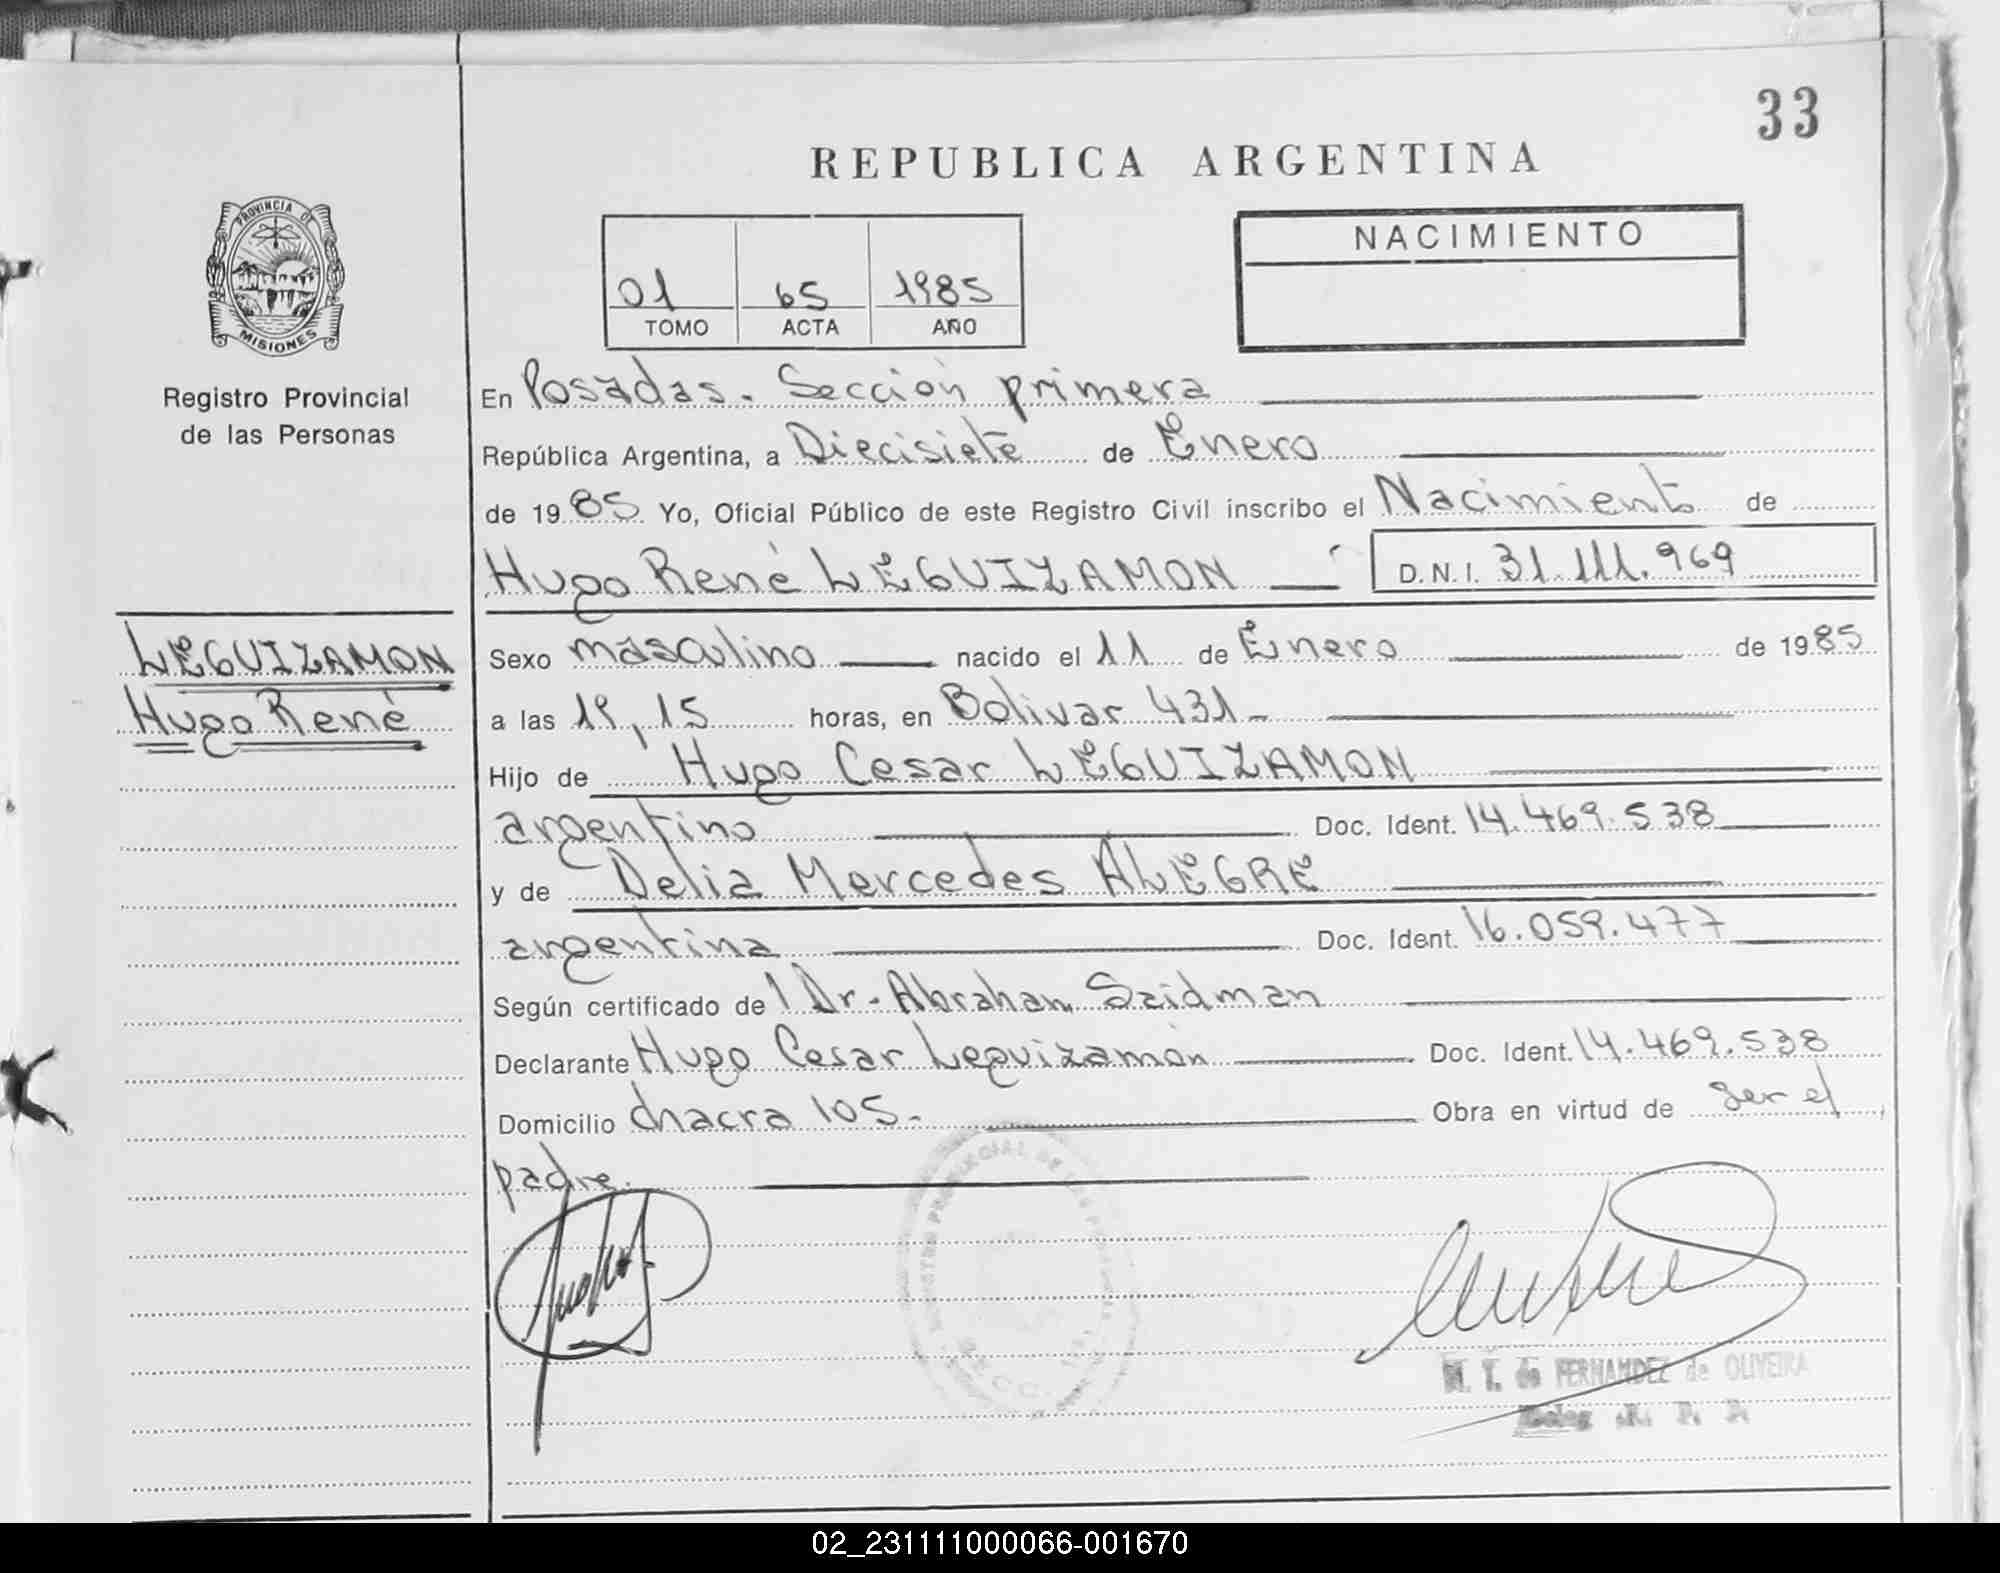 33
REPUBLICA ARGENTINA
PROVINCIA DE
MISIONES
Registro Provincial
de las Personas
01 65 1985
TOMO ACTA AÑO
NACIMIENTO
En Posadas. Sección primera
República Argentina, a Diecisiete de Enero
de 1985 Yo, Oficial Público de este Registro Civil inscribo el Nacimiento de
Hugo René LEGUIZAMON D.N.I. 31.111.969
LEGUIZAMON
Hugo René
Sexo masculino nacido el 11 de Enero de 1985
a las 19,15 horas, en Bolivar 431-
Hijo de Hugo Cesar LEGUIZAMON
argentino Doc. Ident. 14.469.538
y de Delia Mercedes ALEGRE
argentina Doc. Ident. 16.059.477
Según certificado de Dr. Abrahan Saidman
Declarante Hugo Cesar Leguizamón Doc. Ident. 14.469.538
Domicilio chacra 105.- Obra en virtud de ser el
padre.
M. T. de FERNANDEZ de OLIVEIRA
02_231111000066-001670